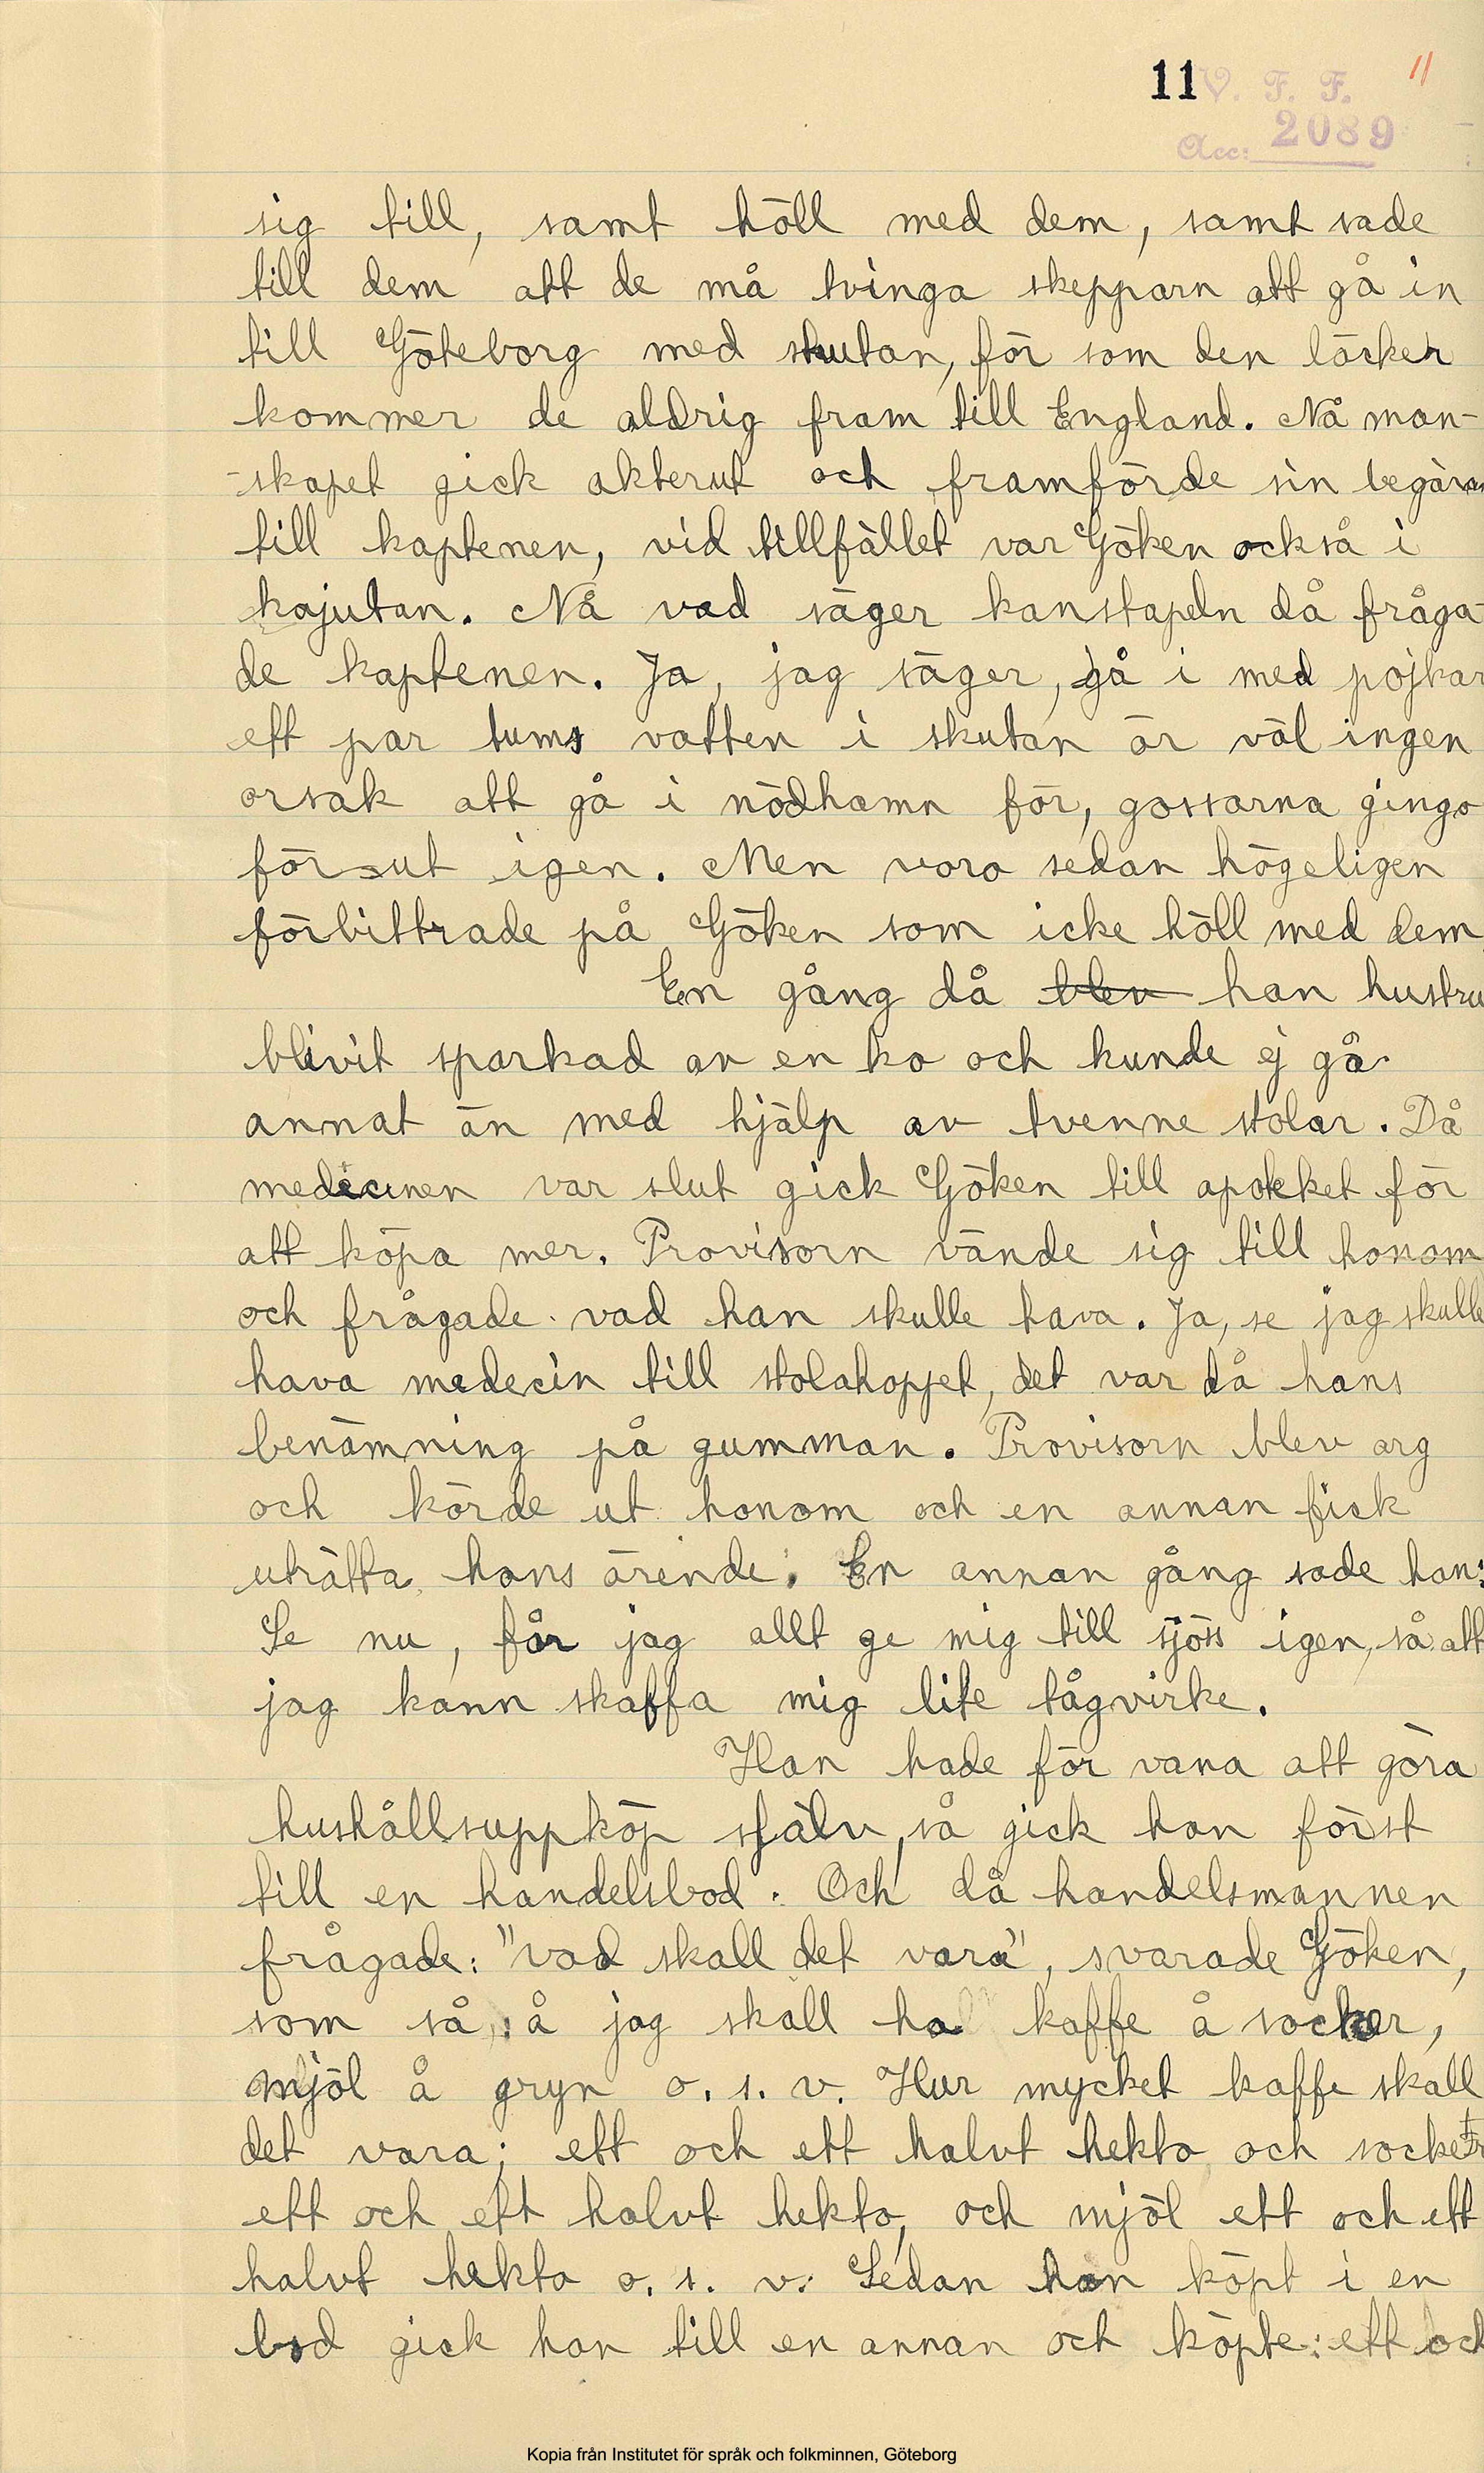 11 V. F. F. 11
Acc: 2089
sig till, samt höll med dem, samt sade
till dem att de må tvinga skepparn att gå in
till Göteborg med skutan, för som den läcker
kommer de aldrig fram till England. Nå man-
-skapet gick akterut och framförde sin begäran
till kaptenen, vid tillfället var Göken också i
kajutan. Nå vad säger kanstapeln då fråga-
de kaptenen. Ja, jag säger, gå i med pojkar
ett par tums vatten i skutan är väl ingen
orsak att gå i nödhamn för, gossarna gingo
förut igen. Men voro sedan högeligen
förbittrade på Göken som icke höll med dem,
En gång då blev han hustru
blivit sparkad av en ko och kunde ej gå
annat än med hjälp av tvenne stolar. Då
medecinen var slut gick Göken till apoteket för
att köpa mer. Provisorn vände sig till honom
och frågade vad han skulle hava. Ja, se jag skulle
hava medecin till stolahoppet, det var då hans
benämning på gumman. Provisorn blev arg
och körde ut honom och en annan fick
uträtta hans ärende. En annan gång sade han:
Se nu, får jag allt ge mig till sjöss igen, så att
jag kann skaffa mig lite tågvirke.
Han hade för vana att göra
hushållsuppköp själv, så gick han först
till en handelsbod. Och då handelsmannen
frågade: "vad skall det vara", svarade Göken,
som så: å jag skall ha kaffe å socker,
mjöl å gryn o. s. v. Hur mycket kaffe skall
det vara; ett och ett halvt hekto och socker
ett och ett halvt hekto, och mjöl ett och ett
halvt hekto o. s. v. Sedan han köpt i en
bod gick han till en annan och köpte: ett och
Kopia från Institutet för språk och folkminnen, Göteborg